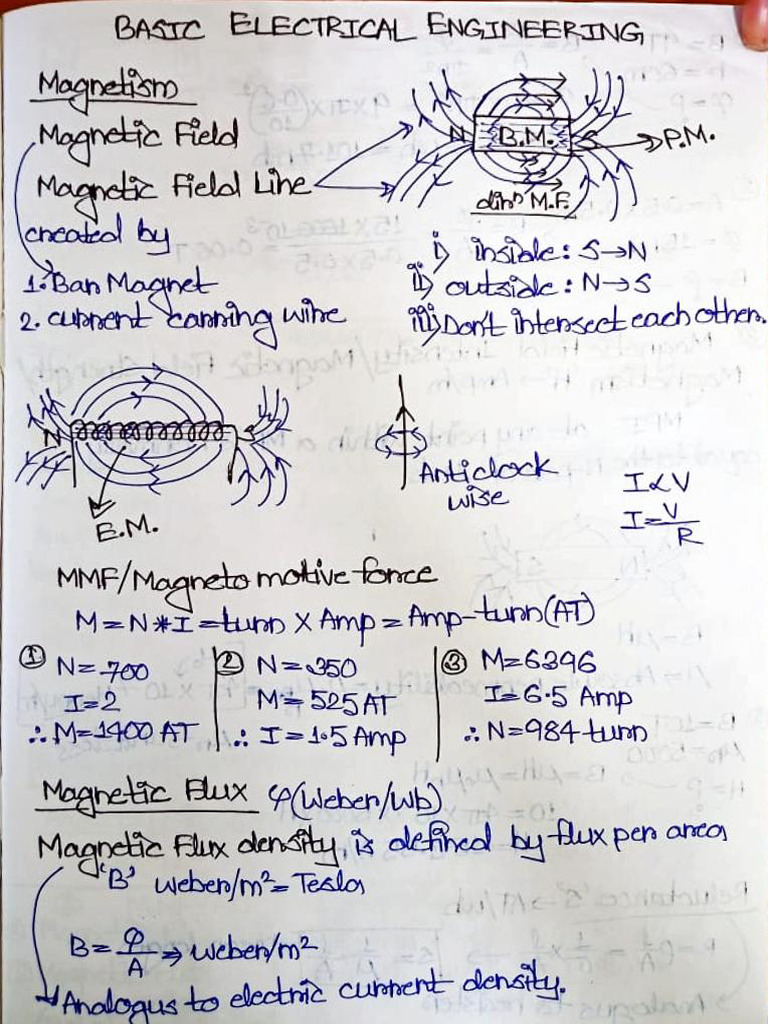 BASIC ELECTRICAL ENGINEERING
Magnetism
Magnetic Field
Magnetic Field Line
created by
1. Bar Magnet
2. current carring wire
N B.M. S P.M.
dirⁿ M.F.
i) inside: S→N
ii) outside: N→S
iii) Don't intersect each other.
N S
E.M.
Anticlock
wise
I∝V
I=V/R
MMF/Magneto motive force
M=N*I=turn X Amp=Amp-turn(AT)
① N=700
I=2
∴ M=1400 AT
② N=350
M=525 AT
∴ I=1.5 Amp
③ M=6396
I=6.5 Amp
∴ N=984 turn
Magnetic Flux φ(Weber/Wb)
Magnetic Flux density, is defined by flux per area
'B' weber/m²=Tesla
B=φ/A ⇒ weber/m²
Analogus to electric current density.